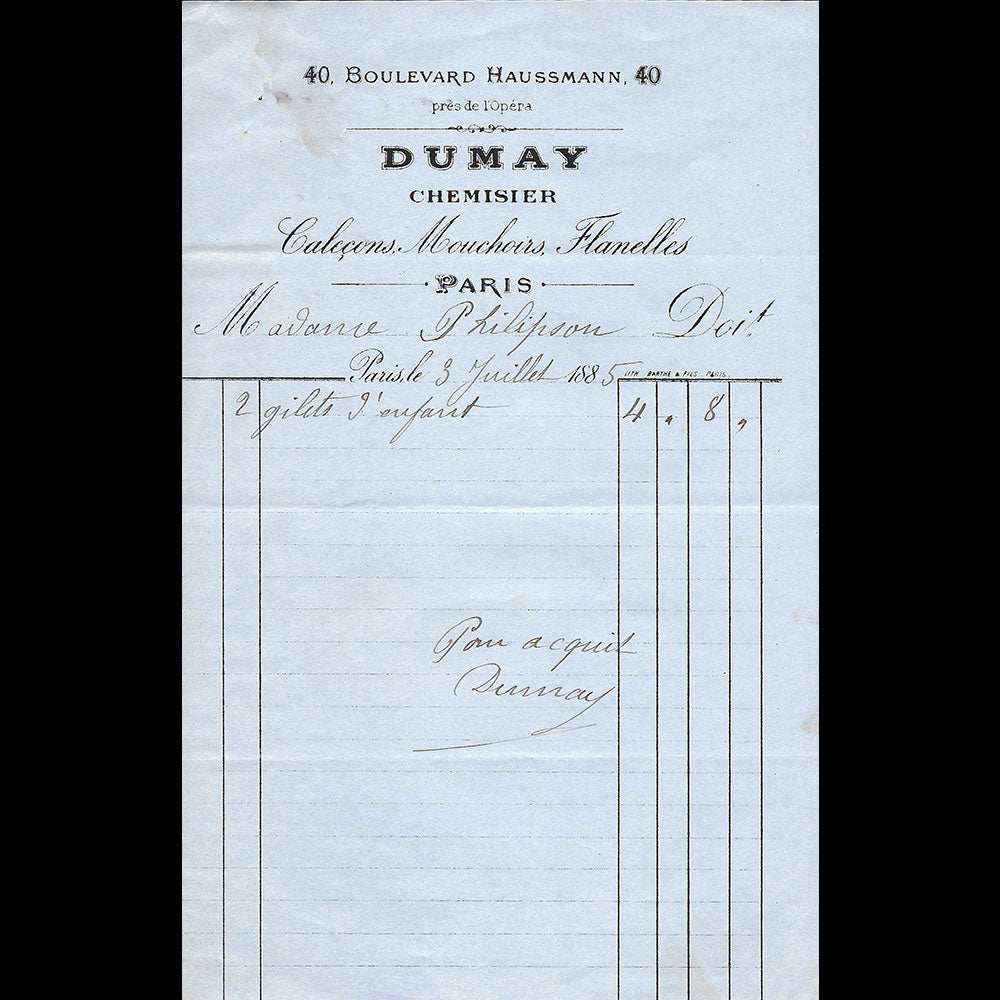 40, BOULEVARD HAUSSMANN, 40
près de l'Opéra
DUMAY
CHEMISIER
Caleçons, Mouchoirs, Flanelles
PARIS
Madame Philipson Doit
Paris, le 3 Juillet 1885
LITH. BARTHE & FILS. PARIS.
2 gilets d'enfant 4 " 8 "
Pour acquit
Dumay